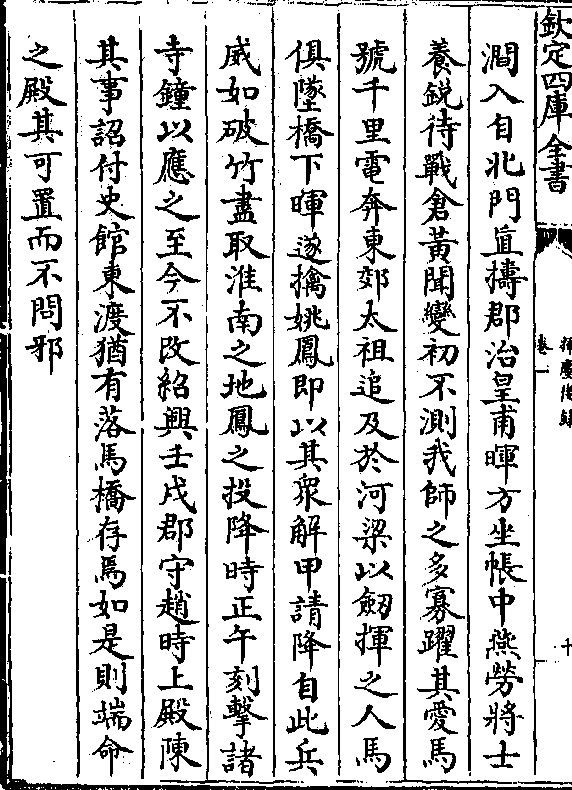 欽定四庫全書
澗入自北門直擣郡治皇甫暉方坐帳中燕勞將士
養鋭待戰倉黃聞變初不測我師之多寡躍其愛馬
號千里電奔東郊太祖追及於河梁以劒揮之人馬
俱墜橋下暉遂擒姚鳳即以其衆解甲請降自此兵
威如破竹盡取淮南之地鳳之投降時正午刻擊諸
寺鐘以應之至今不改紹興壬戌郡守趙時上殿陳
其事詔付史館東渡猶有落馬橋存焉如是則端命
之殿其可置而不問邪
卷一
十